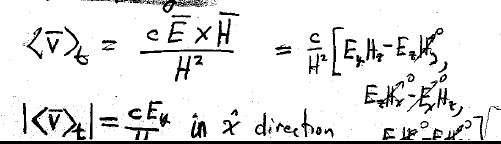 ⟨v̄⟩ₜ = c Ē × H̄ / H² = c/H² [E_y H_z − E_z H_y⁰,
E_z H_x⁰ − E_x⁰ H_z,
|⟨v̄⟩ₜ| = cE_y/H in x̂ direction